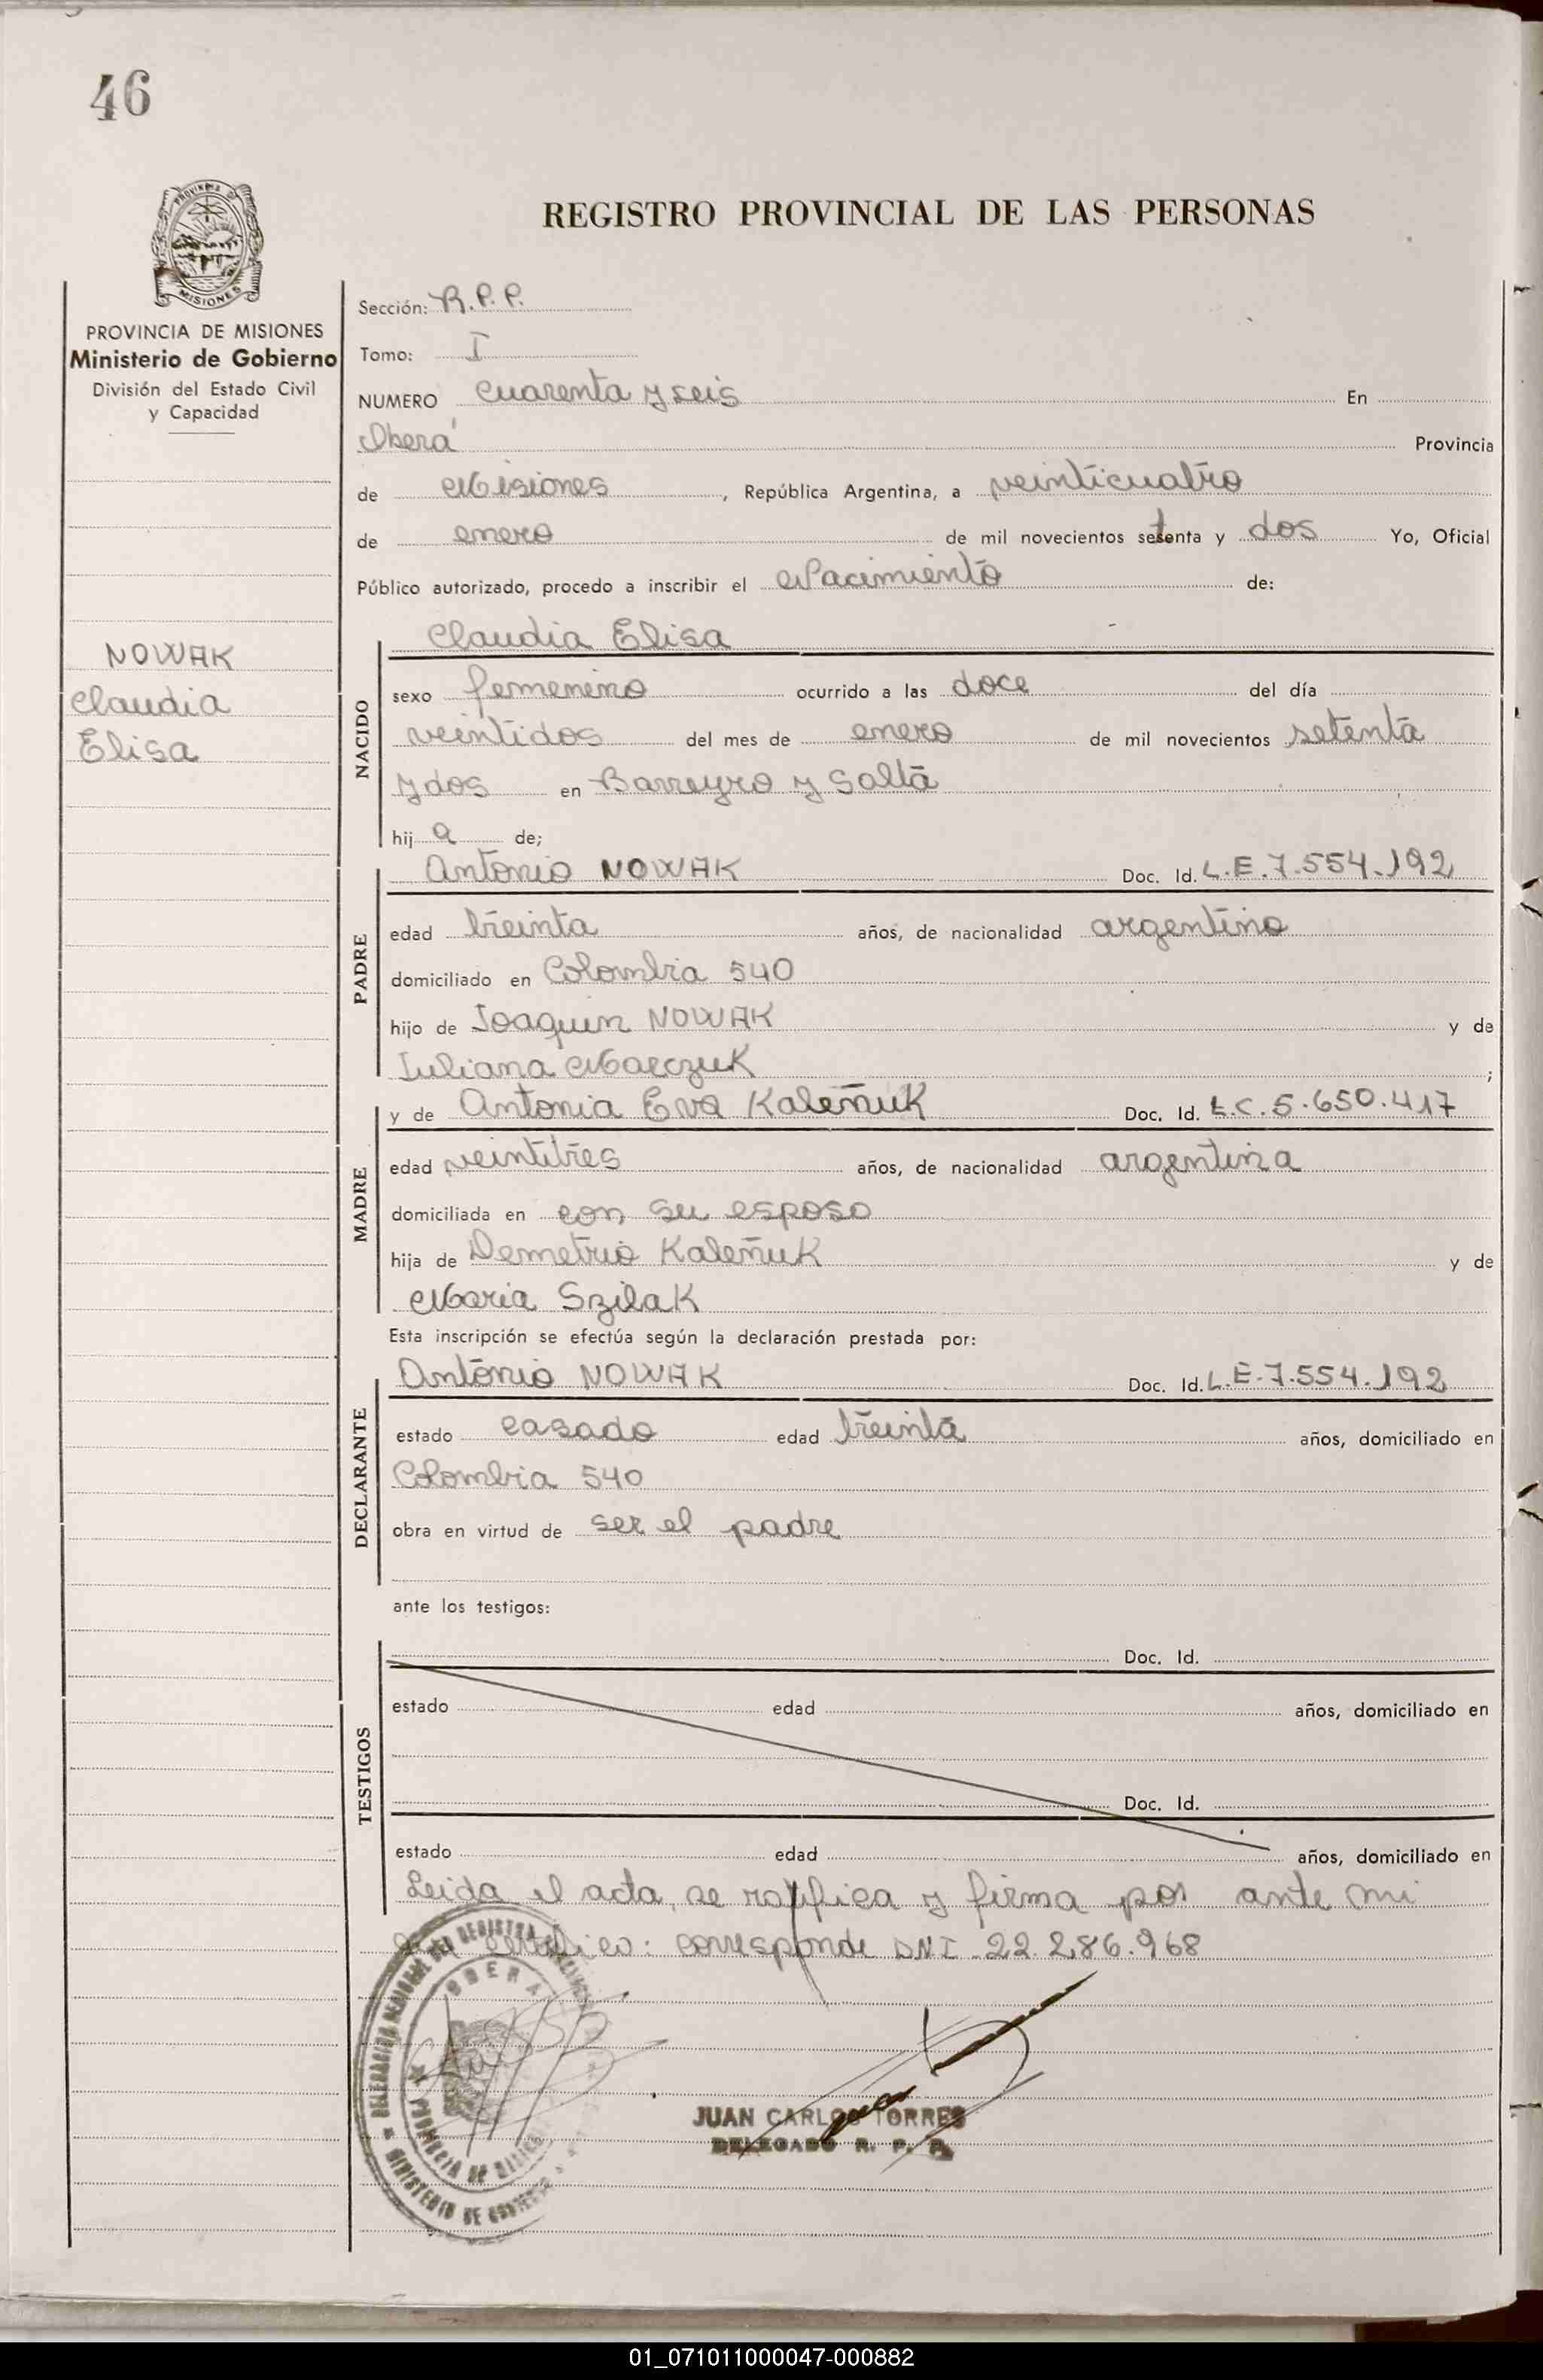 46
PROVINCIA DE
MISIONES
REGISTRO PROVINCIAL DE LAS PERSONAS
PROVINCIA DE MISIONES
Ministerio de Gobierno
División del Estado Civil
y Capacidad
NOWAK
Claudia
Elisa
Sección: R.P.P.
Tomo: I
NUMERO cuarenta y seis En
Oberá Provincia
de Misiones, República Argentina, a veinticuatro
de enero de mil novecientos setenta y dos Yo, Oficial
Público autorizado, procedo a inscribir el Nacimiento de:
NACIDO
Claudia Elisa
sexo femenino ocurrido a las doce del día
veintidos del mes de enero de mil novecientos setenta
y dos en Barreyro y Salta
hij a de;
PADRE
Antonio NOWAK Doc. Id. L.E.7.554.192
edad treinta años, de nacionalidad argentino
domiciliado en Colombia 540
hijo de Joaquin NOWAK y de
Juliana Marczuk ;
MADRE
y de Antonia Eva Kaleñuk Doc. Id. L.C.5.650.417
edad veintitres años, de nacionalidad argentina
domiciliada en con su esposo
hija de Demetrio Kaleñuk y de
Maria Szilak
Esta inscripción se efectúa según la declaración prestada por:
DECLARANTE
Antonio NOWAK Doc. Id. L.E.7.554.192
estado casado edad treinta años, domiciliado en
Colombia 540
obra en virtud de ser el padre
ante los testigos:
TESTIGOS
Doc. Id.
estado edad años, domiciliado en
Doc. Id.
estado edad años, domiciliado en
Leida el acta, se ratifica y firma por ante mi
certifico: corresponde DNI 22.286.968
DELEGACION REGIONAL DEL REGISTRO
OBERA
PROVINCIA DE
MINISTERIO DE
JUAN CARLOS TORRES
DELEGADO R. P. P.
01_071011000047-000882